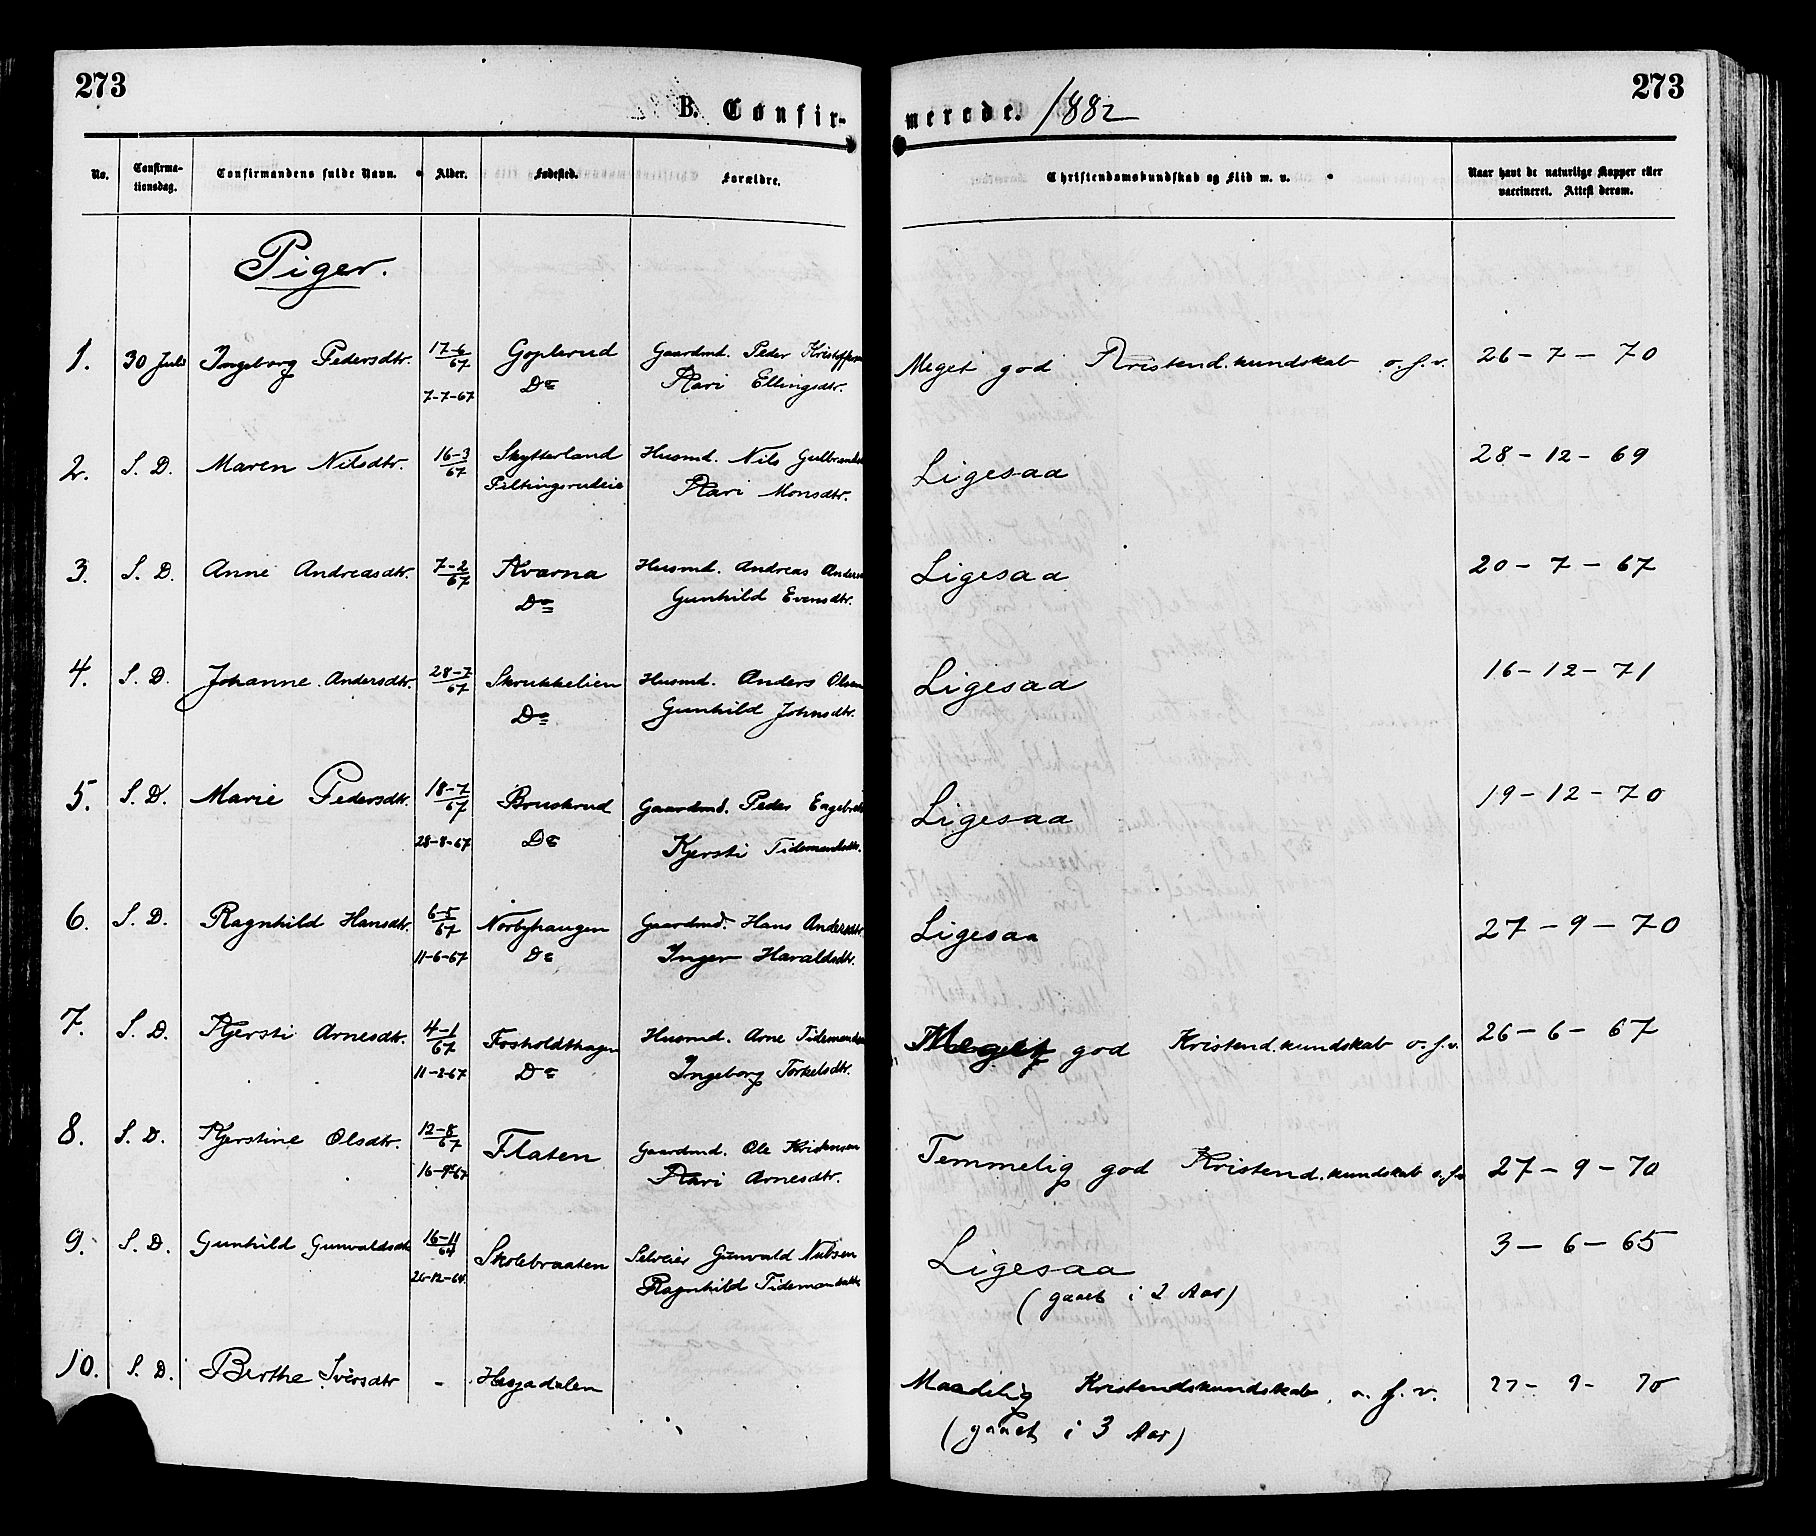 273
B. Confir-
merede. 1882
273
No.
Confirma-
tionsdag.
Confirmandens fulde Navn.
Alder.
Fødested.
Forældre.
Christendomskundskab og Flid m. v.
Naar havt de naturlige Kopper eller
vaccineret. Attest derom.
Piger.
1. 30 Juli Ingeborg Pedersdtr. 17-6/67 Goplerud Gaardmd. Peder Kristoffersen Meget god Kristend.kundskab o.f.v. 26-7-70
7-7-67 Do Kari Ellingsdtr.
2. S. D. Maren Nilsdtr. 16-3/67 Skytterland Husmd. Nils Ligesaa 28-12-69
Kari Monsdtr.
3. S. D. Anne Andreasdtr. 7-2/67 Kværna Husmd. Andreas Ligesaa 20-7-67
Do Gunhild Evensdtr.
4. S. D. Johanne Andersdtr. 28-7/67 Skrukkelien Husmd. Anders Olsen Ligesaa 16-12-71
Do Gunhild Johnsdtr.
5. S. D. Marie Pedersdtr. 18-7/67 Bruskrud Gaardmd. Peder Ligesaa 19-12-70
28-8-67 Do Kjersti
6. S. D. Ragnhild Hansdtr. 6-5/67 Norbyhaugen Gaardmd. Hans Ligesaa 27-9-70
11-6-67 Do Inger Haraldsdtr.
7. S. D. Kjersti Arnesdtr. 4-1/67 Fosholdthagen Husmd. Arne Meget god Kristend.kundskab o.f.v. 26-6-67
11-2-67 Do Ingeborg Torkelsdtr.
8. S. D. Kjerstine Olsdtr. 12-8/67 Flaten Gaardmd. Ole Kristensen Temmelig god Kristend.kundskab o.f.v. 27-9-70
16-9-67 Kari Arnesdtr.
9. S. D. Gunhild Gunvaldsdtr 16-11/64 Skolebraaten Selveier Gunvald Nilsen Ligesaa 3-6-65
26-12-64 Ragnhild
(gaaet i 2 Aar)
10. S. D. Berthe Iversdtr - Hesjadalen Maadelig Kristendskundskab o. f. v. 27-9-70
(gaaet i 3 Aar)